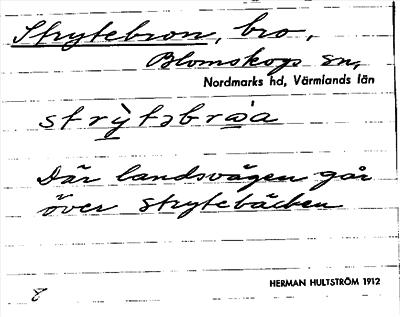 Strytebron, bro,
Blomskogs sn,
Nordmarks hd, Värmlands län
Där landsvägen går
över strytebäcken
HERMAN HULTSTRÖM 1912
8